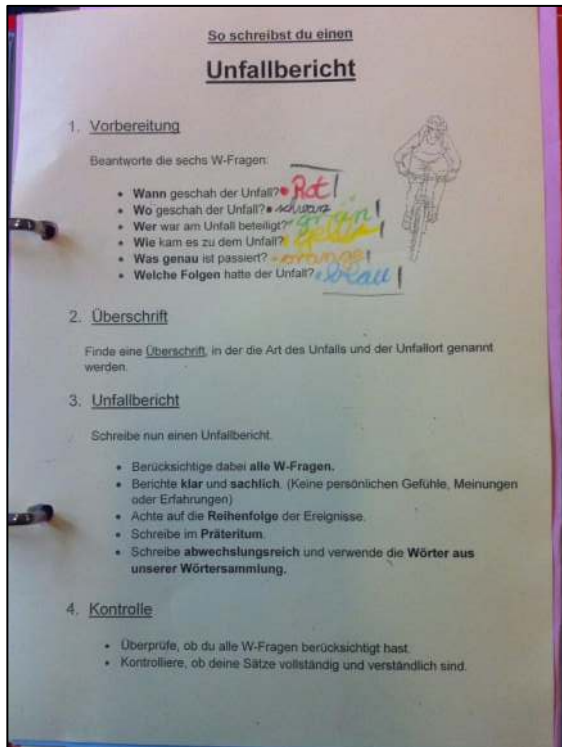 So schreibst du einen
Unfallbericht
1. Vorbereitung
Beantworte die sechs W-Fragen:
• Wann geschah der Unfall? • Rot
• Wo geschah der Unfall? • schwarz
• Wer war am Unfall beteiligt? grün
• Wie kam es zu dem Unfall? gelb
• Was genau ist passiert? - orange
• Welche Folgen hatte der Unfall? • blau
2. Überschrift
Finde eine Überschrift, in der die Art des Unfalls und der Unfallort genannt
werden.
3. Unfallbericht
Schreibe nun einen Unfallbericht.
• Berücksichtige dabei alle W-Fragen.
• Berichte klar und sachlich. (Keine persönlichen Gefühle, Meinungen
oder Erfahrungen)
• Achte auf die Reihenfolge der Ereignisse.
• Schreibe im Präteritum.
• Schreibe abwechslungsreich und verwende die Wörter aus
unserer Wörtersammlung.
4. Kontrolle
• Überprüfe, ob du alle W-Fragen berücksichtigt hast.
• Kontrolliere, ob deine Sätze vollständig und verständlich sind.